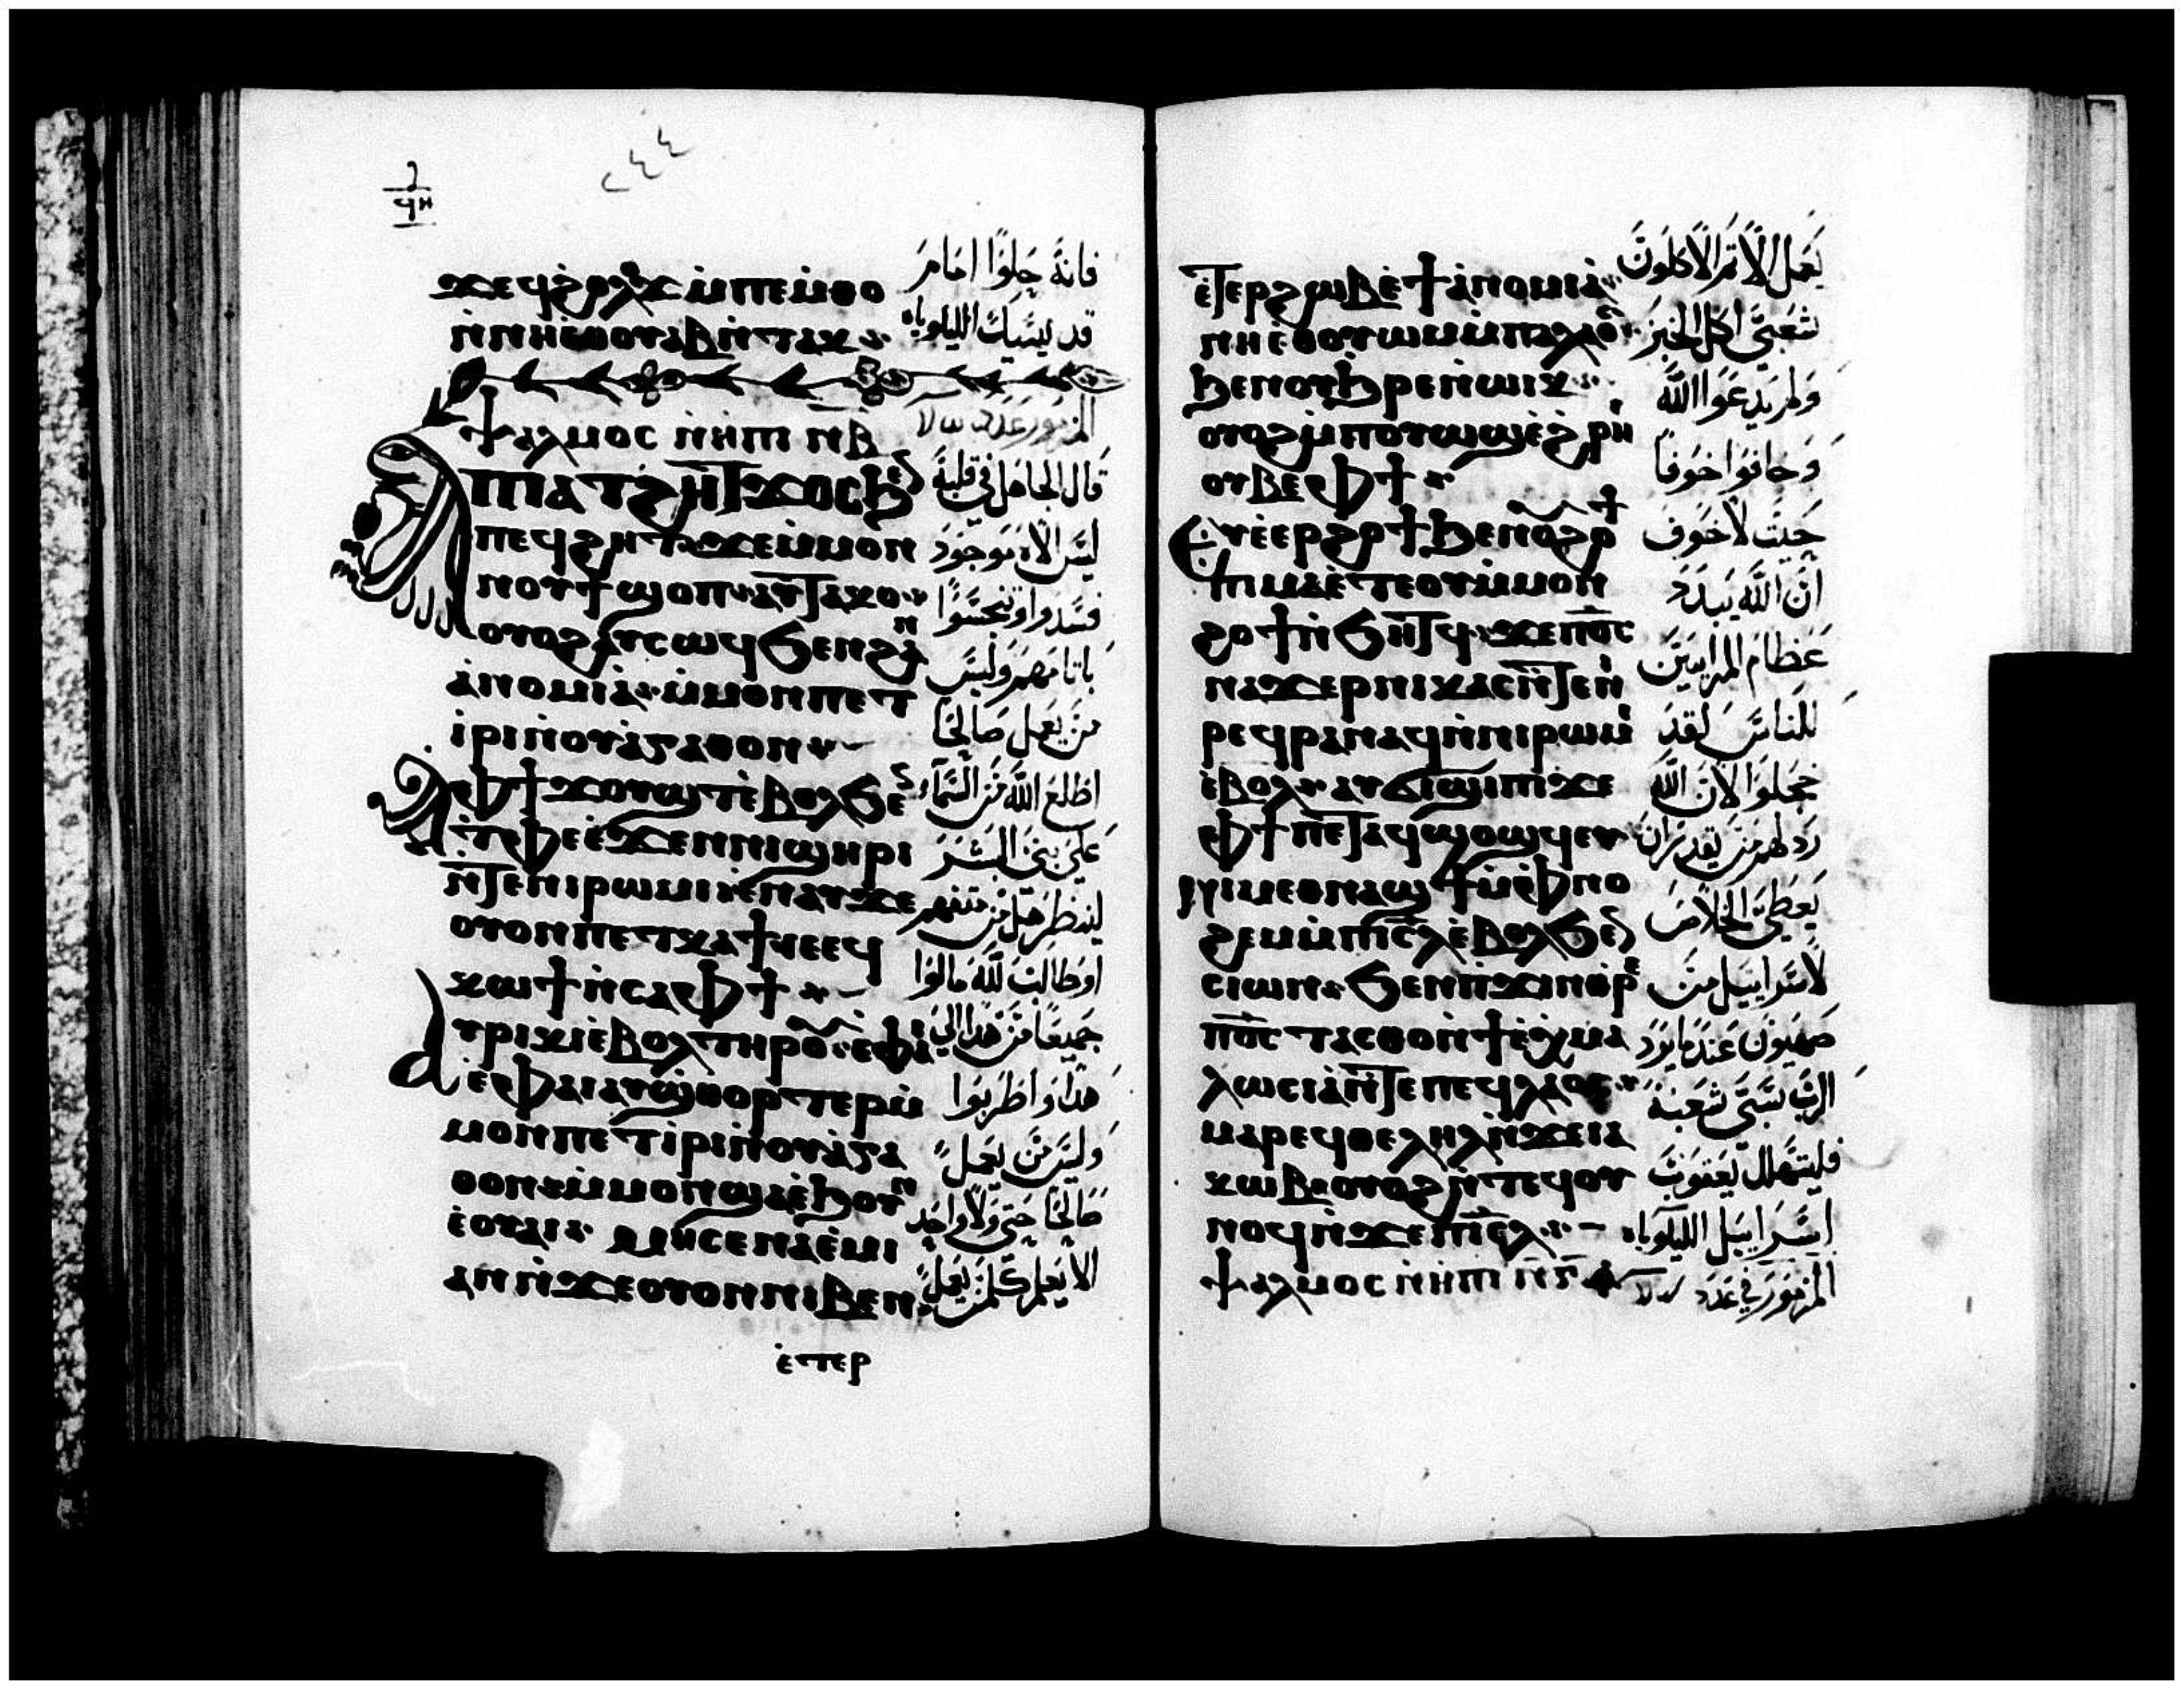 ٢٤٤
ϫⲉϥϩⲟⲗϫ ⲙ̇ⲡⲉⲙⲑⲟ
ⲛ̇ⲛⲏⲉⲑⲟⲩⲁⲃ ⲛ̇ⲧⲁⲕ
ⲯⲁⲗⲙⲟⲥ ⲛ̇ⲏⲡⲓ ⲛⲃ
ⲡⲓⲁⲧϩⲏⲧ ϫⲟⲥ ϧⲉ
ⲡⲉϥϩⲏⲧ ϫⲉ ⲙ̇ⲙⲟⲛ
ⲛⲟⲩϯ ϣⲟⲡ ⲁⲩⲧⲁⲕⲟ
ⲟⲩⲟϩ ⲁⲩⲥⲱϥ ϧⲉⲛ ϩⲁⲛ
ⲁ̇ⲛⲟⲙⲓⲁ̇ ⲙ̇ⲙⲟⲛ ⲡⲉⲧ
ⲓ̇ⲣⲓ ⲛ̇ⲟⲩⲁ̇ⲅⲁⲑⲟⲛ
ⲁ̀ⲫϯ ϫⲟⲩϣⲧ ⲉ̇ⲃⲟⲗ ϧⲉ
ⲧ̇ⲫⲉ ⲉ̇ϫⲉⲛ ⲛⲓϣⲏⲣⲓ
ⲛ̇ⲧⲉ ⲛⲓⲣⲱⲙⲓ ⲉ̇ⲛⲁⲩ ϫⲉ
ⲟⲩⲟⲛ ⲡⲉⲧⲕⲁϯ ⲓⲉ ⲉϥ
ⲕⲱϯ ⲛ̇ⲥⲁ ⲫϯ
ⲁⲩⲣⲓⲕⲓ ⲉ̇ⲃⲟⲗ ⲧⲏⲣⲟⲩ ⲉⲫⲁⲓ
ⲉ̇ⲫⲁⲓ ⲁⲩϣⲑⲟⲣⲧⲉⲣ ⲙ̇
ⲙⲟⲛ ⲡⲉⲧⲓ̇ⲣⲓ ⲛ̇ⲟⲩⲁ̇ⲅⲁ
ⲑⲟⲛ ⲙ̇ⲙⲟⲛ ϣⲁ ⲉ̇ϧⲟⲩⲛ
ⲉ̇ⲟⲩⲁⲓ ⲙⲏ ⲥⲉⲛⲁⲉ̇ⲙⲓ
ⲁⲛ ⲛ̇ϫⲉ ⲟⲩⲟⲛ ⲛⲓⲃⲉⲛ
ⲉ̇ⲧⲉⲣ
فانه حلوا امام
قد يسيك الليلوياه
المزمور عدد
قال الجاهل في قلبه
ليس الاه موجود
فسدوا وتنجسوا
باثامهم وليس
من يعمل صالحا
اطلع الله من السماء
على بني البشر
لينظر هل من متفهم
او طالب لله مالوا
جميعا من هذا الي
هذا واضطربوا
وليس من يعمل
صالحا حتى ولا واحد
الا يعلم كلمن يعمل
ⲉ̇ⲧⲉⲣϩⲱⲃ ⲉ̇ϯⲁ̇ⲛⲟⲙⲓⲁ̇
ⲛⲏⲉⲑⲟⲩⲱⲙ ⲙ̇ⲡⲁⲗⲁⲟⲥ
ϧⲉⲛ ⲟⲩϧⲣⲉ ⲛ̇ⲱⲓⲕ
ⲟⲩⲟϩ ⲙ̇ⲡⲟⲩⲱϣ ⲉ̇ϩⲣⲏⲓ
ⲟⲩⲃⲉ ⲫϯ
ⲉⲩⲉ̇ⲉⲣϩⲟϯ ϧⲉⲛ ⲟⲩϩⲟϯ
ⲡⲓⲙⲁ ⲉ̇ⲧⲉ ⲟⲩⲙ̇ⲙⲟⲛ
ϩⲟϯ ⲛ̇ϧⲏⲧϥ ϫⲉ ⲡⲟ̅ⲥ̅
ⲛⲁϫⲉⲣ ⲛⲓⲕⲁⲥ ⲛ̇ⲧⲉ ⲛⲓ
ⲣⲉϥⲣⲁⲛⲁϥ ⲛ̇ⲛⲓⲣⲱⲙⲓ
ⲉ̇ⲃⲟⲗ ⲁⲩϭⲓϣⲓⲡⲓ ϫⲉ
ⲫϯ ⲡⲉⲧⲁϥϣⲟϣϥⲉⲩ
ⲛⲓⲙ ⲉⲑⲛⲁϣϯ ⲙ̇ⲫⲛⲟ
ϩⲉⲙ ⲙ̇ⲡⲓⲥ̅ⲗ̅ ⲉ̇ⲃⲟⲗ ϧⲉ
ⲥⲓⲱⲛ ϧⲉⲛ ⲡϫⲓⲛⲑⲣⲉ
ⲡⲟ̅ⲥ̅ ⲧⲁⲥⲑⲟ ⲛ̇ϯⲉ̇ⲭⲙⲁ
ⲗⲱⲥⲓⲁ̇ ⲛ̇ⲧⲉ ⲡⲉϥⲗⲁⲟⲥ
ⲙⲁⲣⲉϥⲑⲉⲗⲏⲗ ⲛ̇ϫⲉ ⲓⲁ
ⲕⲱⲃ ⲟⲩⲟϩ ⲛ̇ⲧⲉϥⲟⲩ
ⲛⲟϥ ⲛ̇ϫⲉ ⲡⲓⲥ̅ⲗ̅
ⲯⲁⲗⲙⲟⲥ ⲛ̇ⲏⲡⲓ ⲛⲅ
يعمل الاثم الاكلون
شعبي اكل الخبز
ولم يدعوا الله
وخافوا خوفا
حيث لا خوف
ان الله يبدد
عظام المرايين
للناس لقد
خجلوا لان الله
رذلهم من يقدر ان
يعطي الخلاص
لاسراييل من
صهيون عندما يرد
الرب سبي شعبه
فليتهلل يعقوب
اسراييل الليلوياه
المزمور في عدد